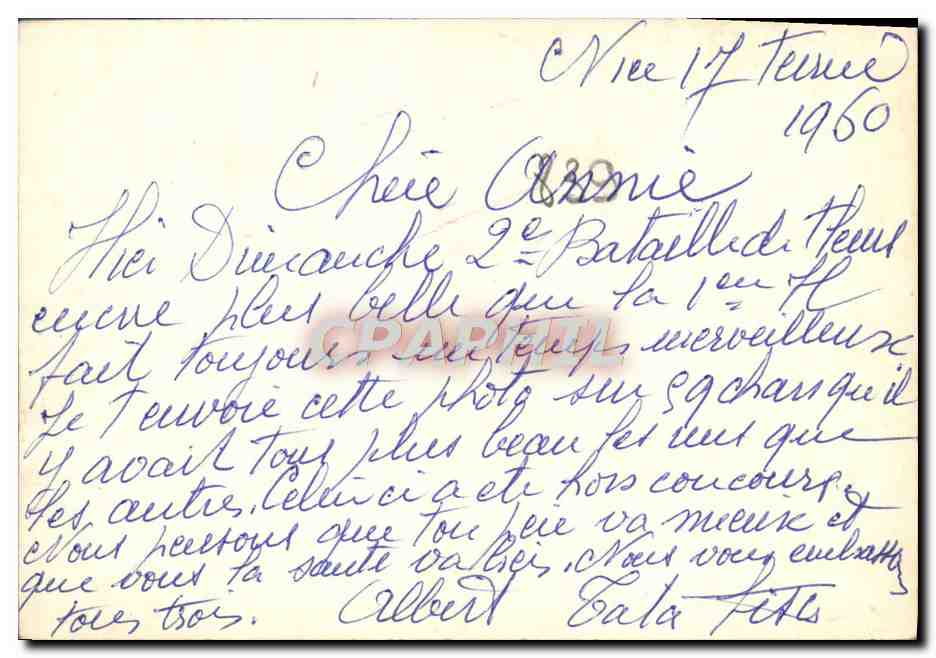 Nice 17 Fevrié
1960
Chère Annie
839
Hier Dimanche 2e Bataille de Fleurs
encore plus belle que la 1ere Il
fait toujours un temps merveilleux
CPARAMA
Je t envoie cette photo sur 59 chars qu il
y avait tous plus beau les uns que
les autres. Celui ci a ete hors concours.
Nous pensons que ton père va mieux et
que vous la santé va bien. Nous vous embrassons
tous trois. Albert Tata